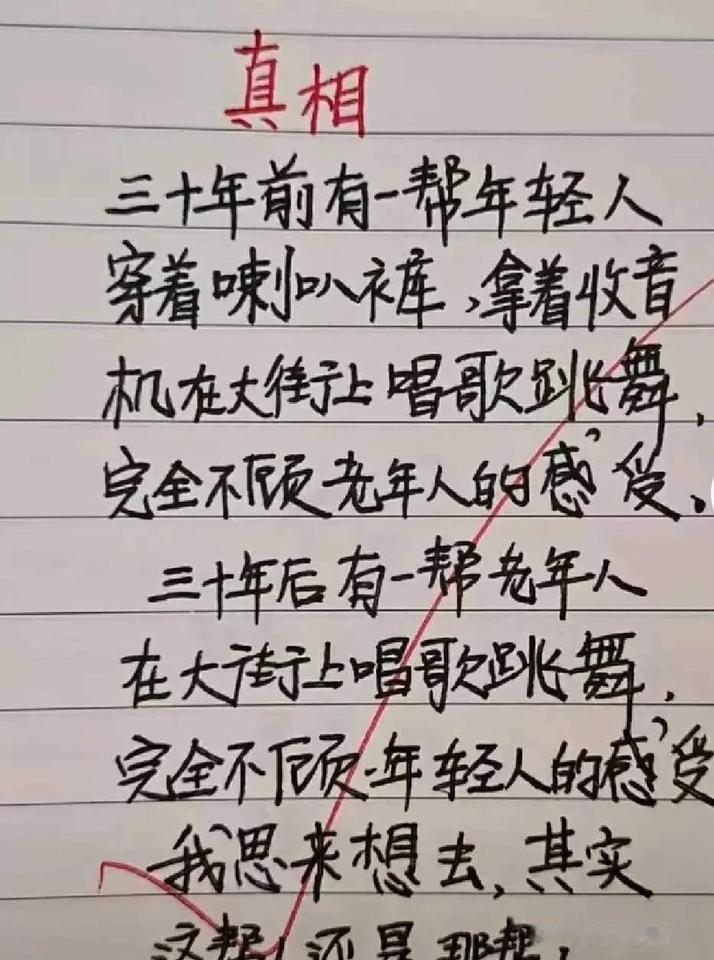 真相
三十年前有一帮年轻人
穿着喇叭裤,拿着收音
机在大街上唱歌跳舞,
完全不顾老年人的感受。
三十年后有一帮老年人
在大街上唱歌跳舞,
完全不顾年轻人的感受
我思来想去,其实
这帮人还是那帮